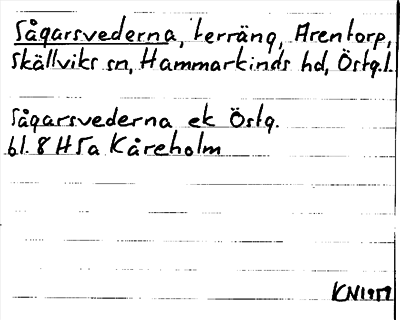 Sågarsvederna, terräng, Arentorp,
Skällviks sn, Hammarkinds hd, Östg.l.
Sågarsvederna ek Östg.
bl. 8 H 5a Kåreholm